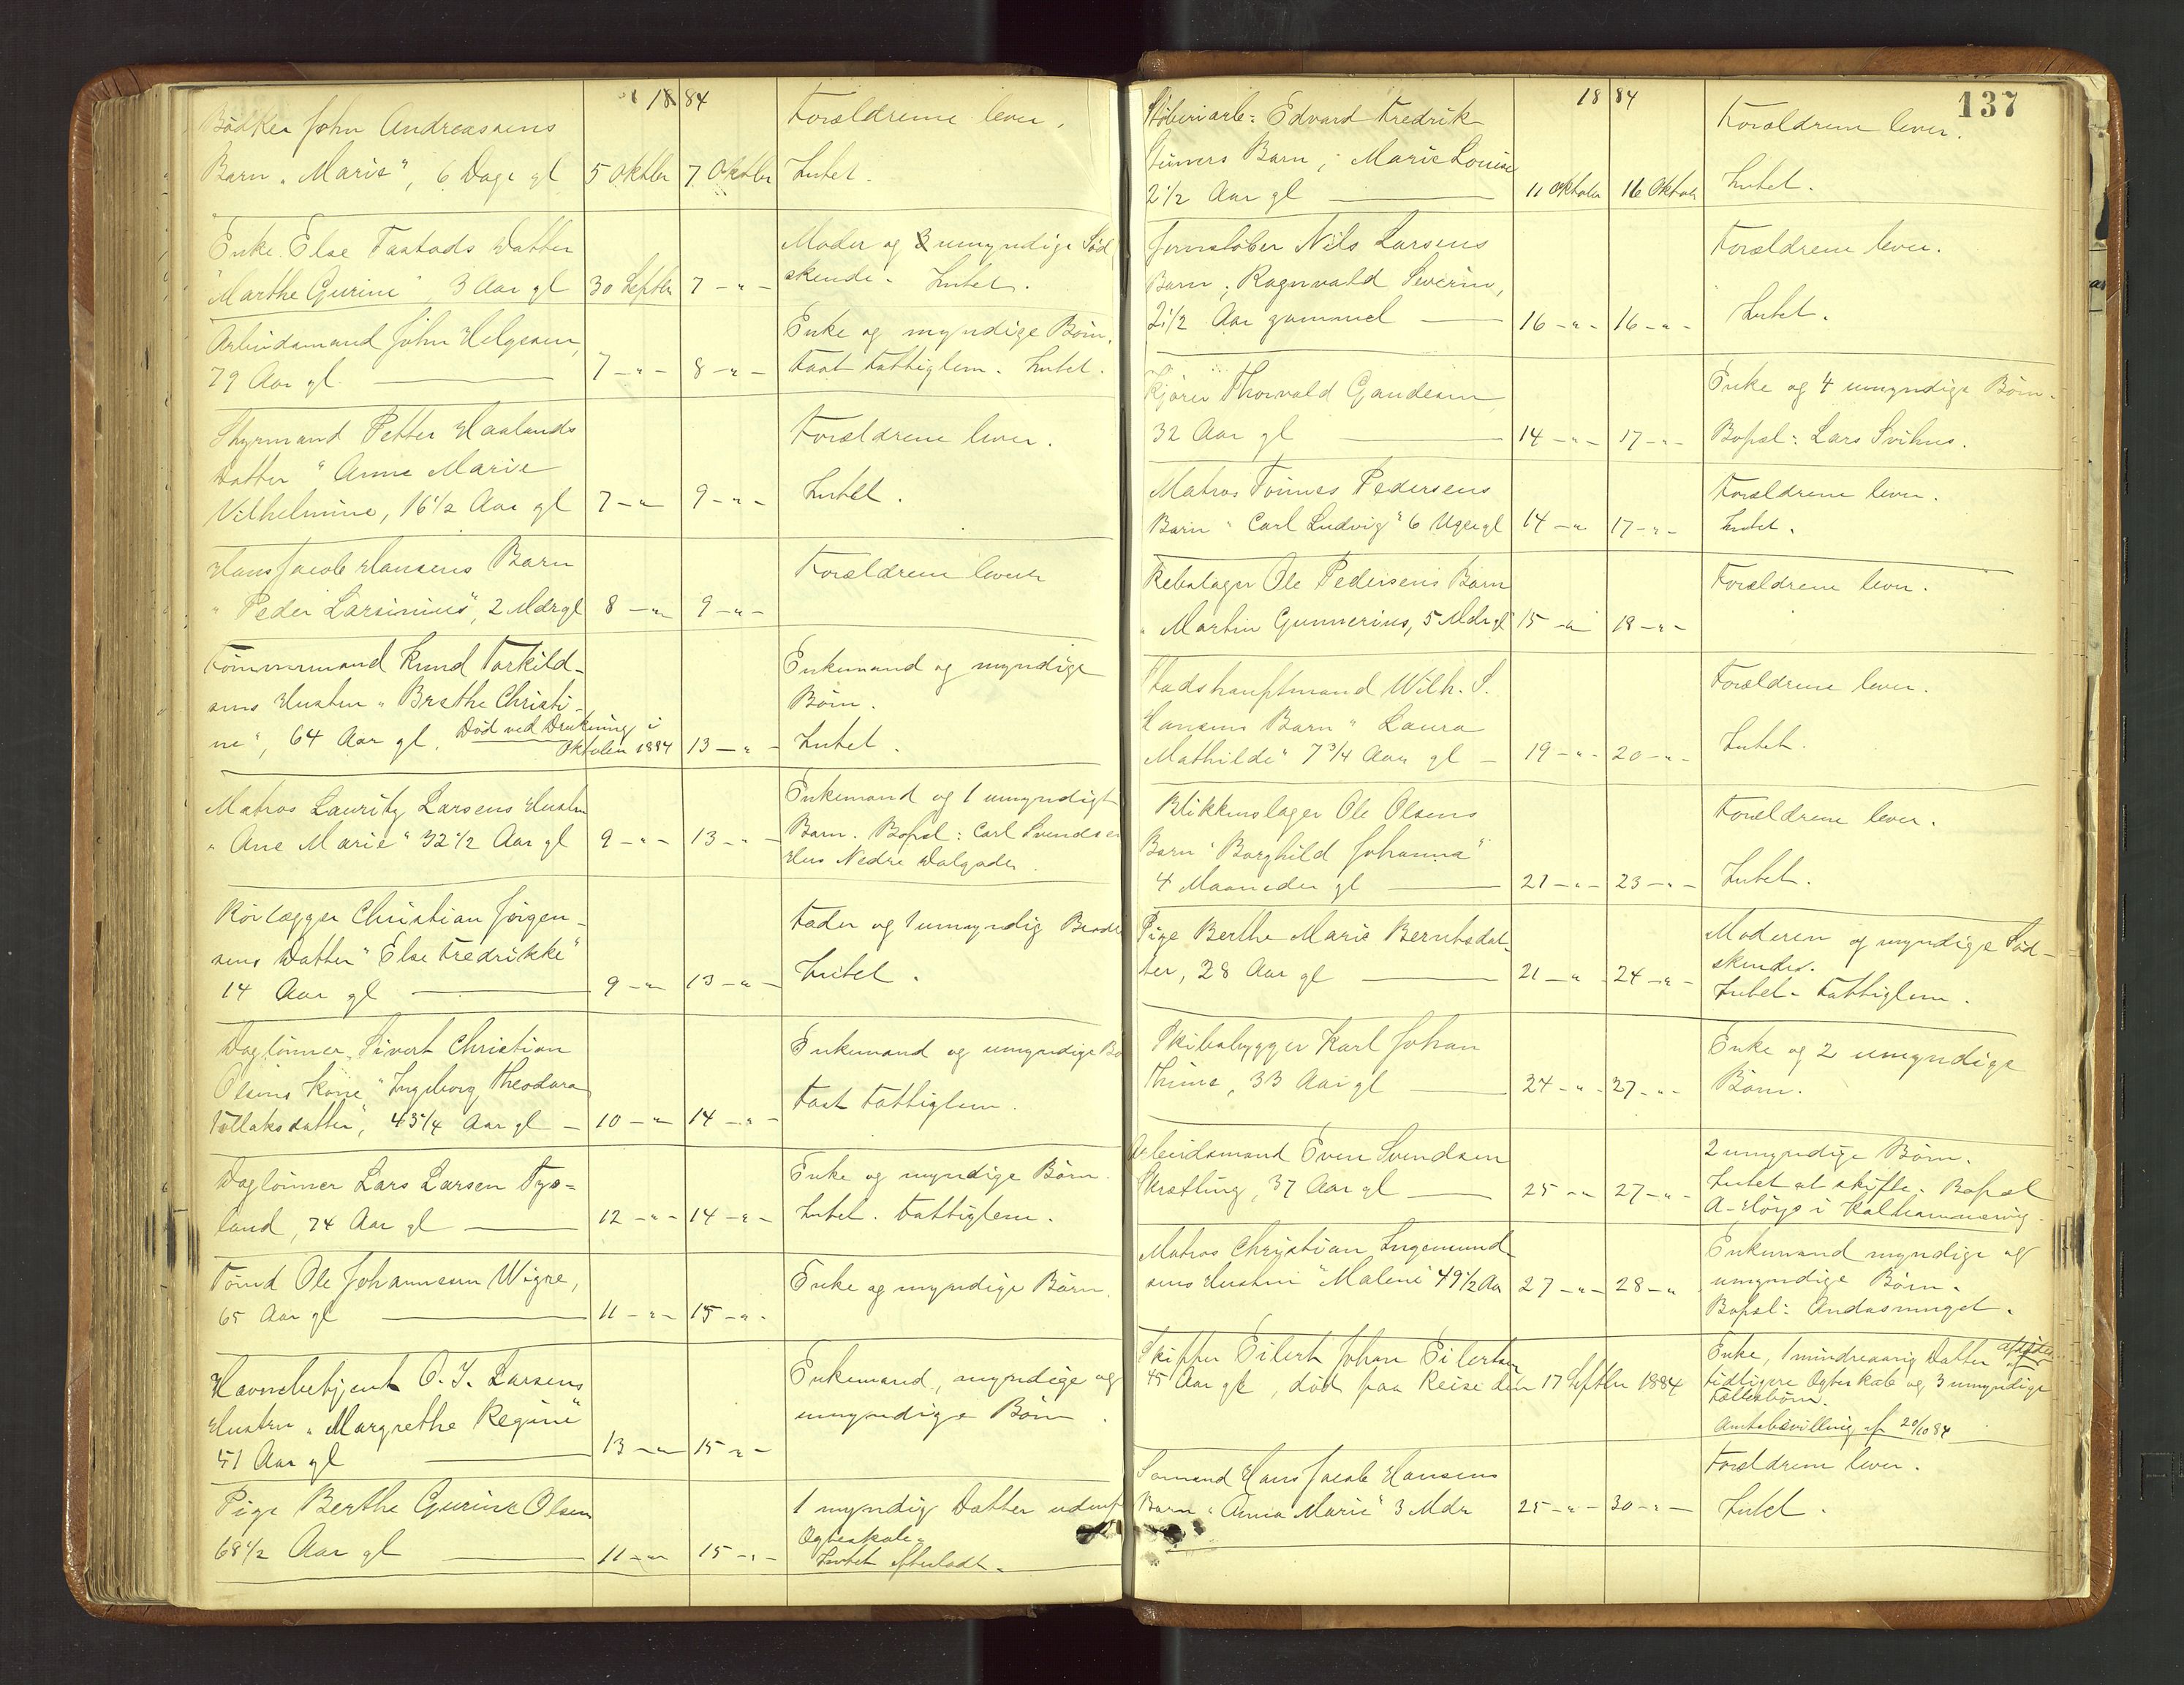 1884
Bödker John Andreassens
Barn "Marie", 6 Dage gl 5 Oktbr 7 Oktober
Forældrene lever.
Intet.
Enke Else Tastads Datter
"Marthe Gurine" 3 Aar gl 30 Septbr 7 - " -
Moder og 3 umyndige Söd
skende. Intet.
Arbeidsmand John Helgesen,
79 Aar gl. 7 - " - 8 - " -
Enke og myndige Börn.
Fast Fattiglem. Intet.
Styrmand Petter Haalands
Datter "Anne Marie
Vilhelmine, 16 1/2 Aar gl 7 - " 9 - " -
Forældrene lever.
Intet.
Hans Jacob Hansens Barn
"Peder Larsinius", 2 Mdr gl 8 - " 9 - " -
Forældrene lever
Tömmermand Knud Torkild-
sens Hustru "Brethe Christi-
ne", 64 Aar gl. Död ved Drukning i
Oktober 1884 13 - " -
Enkemand og myndige
Börn.
Intet.
Matros Lauritz Larsens Hustru
"Ane Marie" 32 1/2 Aar gl 9 - " - 13 - " -
Enkemand og 1 umyndigt
Barn. Bopæl: Carl Svendsen
Hus Nedre Dalgade.
Rörlægger Christian Jörgen-
sens Datter "Else Fredrikke"
14 Aar gl 9 - " 13 - " -
Fader og 1 umyndig Broder
Intet.
Daglönner Sivert Christian
Olsens Kone "Ingeborg Theodora
Tollaksdatter", 43 1/4 Aar gl - 10 - " 14 - " -
Enkemand og umyndige Bö
Fast Fattiglem.
Daglönner Lars Larsen Tys=
land, 74 Aar gl 12 - " - 14 - " -
Enke og myndige Börn.
Intet. Fattiglem.
Tömd Ole Johannesen Wigre,
65 Aar gl 11 - " - 15 - " -
Enke og myndige Börn.
Havnebetjent O. J. Larsens
Hustru "Margrethe Regine"
51 Aar gl 13 - " 15 - " -
Enkemand, myndige og
umyndige Börn.
Pige Berthe Gurine Olsen
68 1/2 Aar gl 11 - " 15 - " -
1 myndig Datter udenf
Ægteskab.
Intet efterladt.
137
1884
Stöberiarb: Edvard Fredrik
Barn, Marie Louise
2 1/2 Aar gl 11 Oktober 16 Oktob
Forældrene lever.
Intet.
Jernstöber Nils Larsens
Barn, Ragnvald Severin,
2 1/2 Aar gammel 16 - " - 16 - " -
Forældrene lever.
Intet.
Kjörer Thorvald Gaudesen
32 Aar gl 14 - " - 17 - " -
Enke og 4 umyndige Börn.
Bopæl: Lars Svihus.
Matros Tönnes Pedersens
Barn "Carl Ludvig" 6 Uger gl 14 - " 17 - " -
Forældrene lever.
Intet.
Rebslager Ole Pedersens Barn
"Martin Gunnerius, 5 Mdr gl 15 - " 18 - " -
Forældrene lever.
Stadshauptmand Wilh. S.
Hansens Barn "Laura
Mathilde" 7 3/4 Aar gl - 19 - " - 20 - " -
Forældrene lever.
Intet.
Blikkenslager Ole Olsens
Barn "Borghild Johanna"
4 Maaneder gl 21 - " - 23 - " -
Forældrene lever.
Intet.
Pige Berthe Marie Berntsdat-
ter, 28 Aar gl 21 - " 24 - " -
Moderen og myndige Söd-
skende.
Intet. Fattiglem.
Skibsbygger Karl Johan
Thime, 33 Aar gl 24 - " - 27 - " -
Enke og 2 umyndige
Börn.
Arbeidsmand Even Svendsen
Skrætting, 37 Aar gl 25 - " 27 - " -
2 umyndige Börn.
Intet at skifte. Bopæl
A. Höye i Kalhammervig.
Matros Christian Ingemund-
sens Hustru "Malene" 49 1/2 Aar 27 - " - 28 - "
Enkemand myndige og
umyndige Börn.
Bopæl: Andasmuget.
Skipper Eilert Johan Eilertsen
45 Aar gl, död paa Reise den 17 Septbr 1884
Enke, 1 mindreaarig Datter af
tidligere Ægteskab og 3 umyndige
Fællesbörn.
Amtsbevilling af 20/10 84
Sömand Hans Jacob Hansens
Barn "Anna Marie" 3 Mdr 25 - " - 30 - " -
Forældrene lever.
Intet.